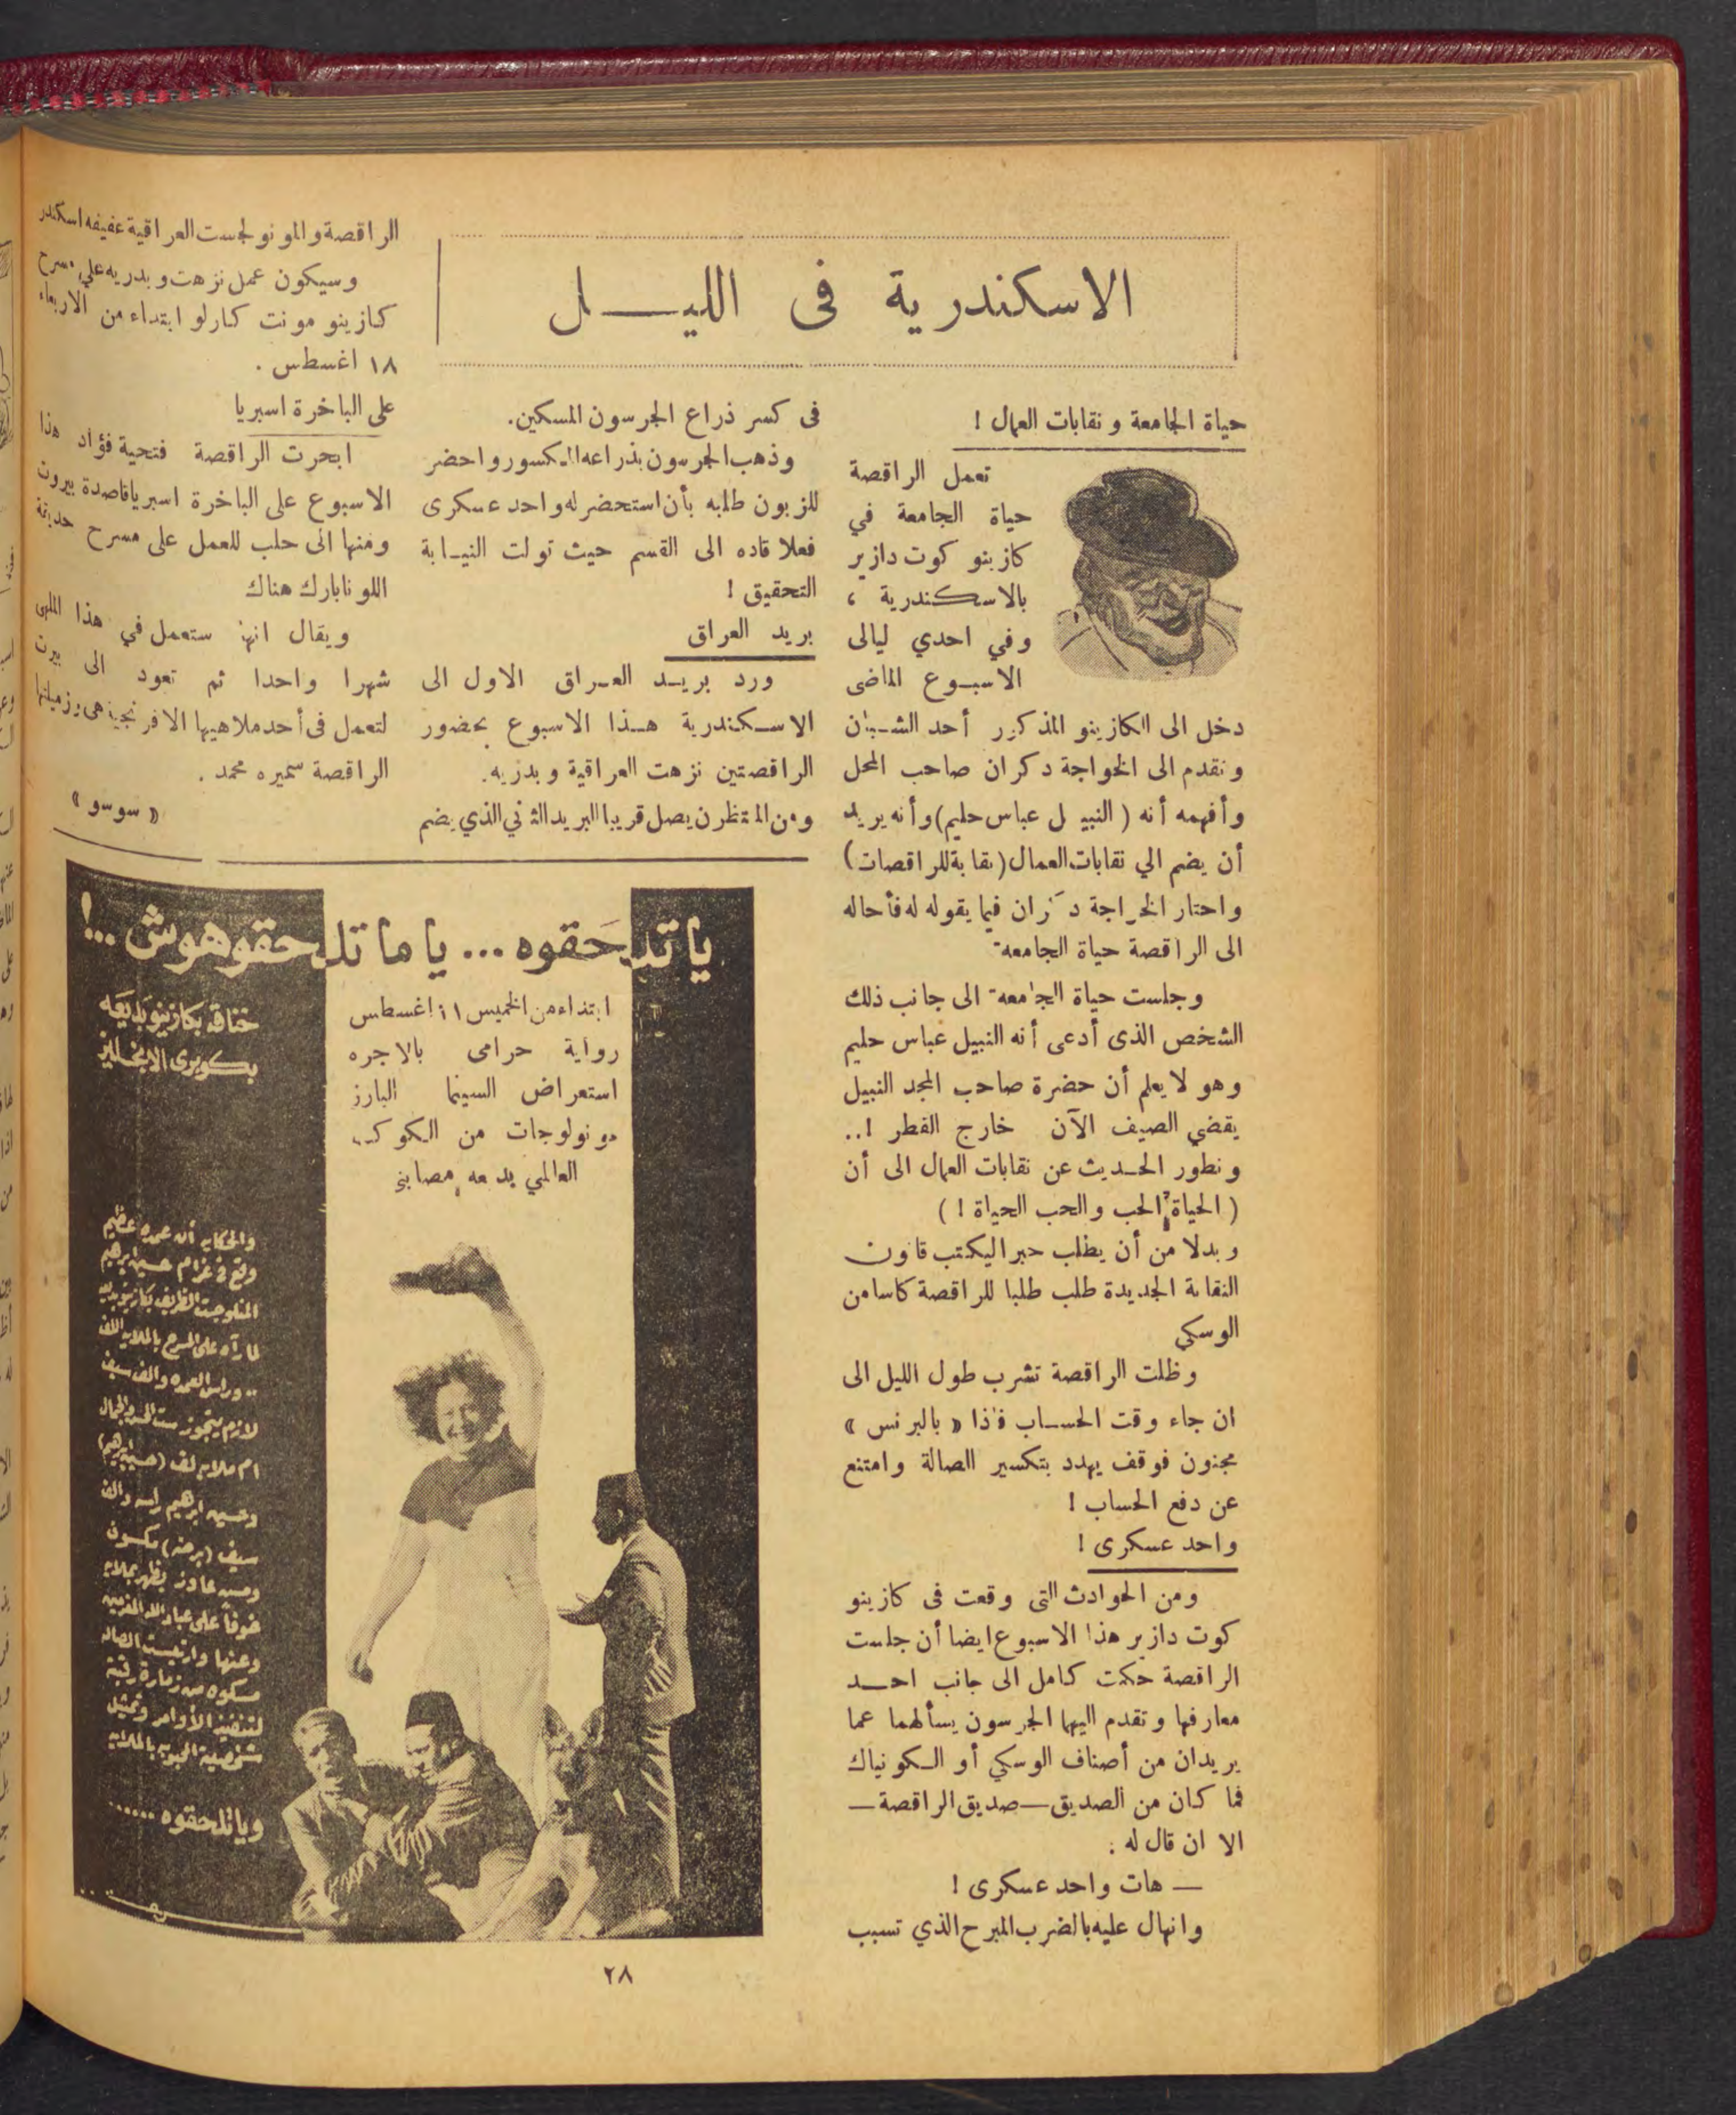 الاسكندرية فى الليـــل
حياة الجامعة ونقابات العمال !
تعمل الراقصة
حياة الجامعة في
كازينو كوت دازير
بالاسكندرية ،
وفي احدي ليالى
الاسبوع الماضى
دخل الى الكازينو المذكور أحد الشبان
وتقدم الى الخواجة دكران صاحب المحل
وأفهمه أنه ( النبيل عباس حليم) وأنه يريد
أن يضم الي نقابات العمال (نقابة للراقصات)
واحتار الخواجة دكران فيما يقوله له فأحاله
الى الراقصة حياة الجامعة
وجلست حياة الجامعة الى جانب ذلك
الشخص الذى أدعى أنه النبيل عباس حليم
وهو لا يعلم أن حضرة صاحب المجد النبيل
يقضي الصيف الآن خارج القطر !..
وتطور الحديث عن نقابات العمال الى أن
( الحياة الحب والحب الحياة ! )
وبدلا من أن يطلب حبرا ليكتب قانون
النقابة الجديدة طلب طلبا للراقصة كاسا من
الوسكي
وظلت الراقصة تشرب طول الليل الى
ان جاء وقت الحساب فاذا « بالبرنس »
مجنون فوقف يهدد بتكسير الصالة وامتنع
عن دفع الحساب !
واحد عسكرى !
ومن الحوادث التى وقعت فى كازينو
كوت دازير هذا الاسبوع ايضا أن جلست
الراقصة حكمت كامل الى جانب احــد
معارفها وتقدم اليهما الجرسون يسألهما عما
يريدان من أصناف الوسكي أو الكونياك
فما كان من الصديق — صديق الراقصة —
الا ان قال له :
— هات واحد عسكرى !
وانهال عليه بالضرب المبرح الذي تسبب
فى كسر ذراع الجرسون المسكين.
وذهب الجرسون بذراعه المكسور واحضر
للزبون طلبه بأن استحضر له واحد عسكرى
فعلا قاده الى القسم حيث تولت النيابة
التحقيق !
بريد العراق
ورد بريد العراق الاول الى
الاسكندرية هذا الاسبوع بحضور
الراقصتين نزهت العراقية وبدريه.
ومن المنتظر ن يصل قريبا البريد الثاني الذي يضم
الراقصة والمونولجست العراقية عفيفه اسكندر
وسيكون عمل نزهت وبدريه على مسرح
كازينو مونت كارلو ابتداء من الاربعاء
١٨ اغسطس .
على الباخرة اسبريا
ابحرت الراقصة فتحية فؤاد هذا
الاسبوع على الباخرة اسبريا قاصدة بيروت
ومنها الى حلب للعمل على مسرح حديقة
اللونابارك هناك
ويقال انها ستعمل في هذا الملهى
شهرا واحدا ثم تعود الى بيرت
لتعمل فى أحد ملاهيها الافرنجية هى وزميلتها
الراقصة سميره محمد .
« سوسو »
يا تلحقوه ... يا ما تلحقوهوش ..!
ابتداء من الخميس ١١ اغسطس
رواية حرامى بالاجره
استعراض السينما البارز
مونولوجات من الكوكب
العالمي بديعه مصابنى
خناقه بكازينو بديعه
بكوبرى الانجليز
والحكايه أنه عمده عظيم
وقع فى غرام حسين ابرهيم
المنلوجست الظريف بكازينو بديعه
لما رآه على المسرح بالملايه اللف
.. وراس العمده والف سيف
لازم يتجوز ست الحسن والجمال
ام ملايه لف (حسين ابرهيم)
وحسين ابرهيم راسه والف
سيف (برضه)
خوفاً على عباد الله المغرمين
وعنها وارتجت الصاله
لتنفيذ الأوامر وتمثيل
ويا تلحقوه ......
٢٨